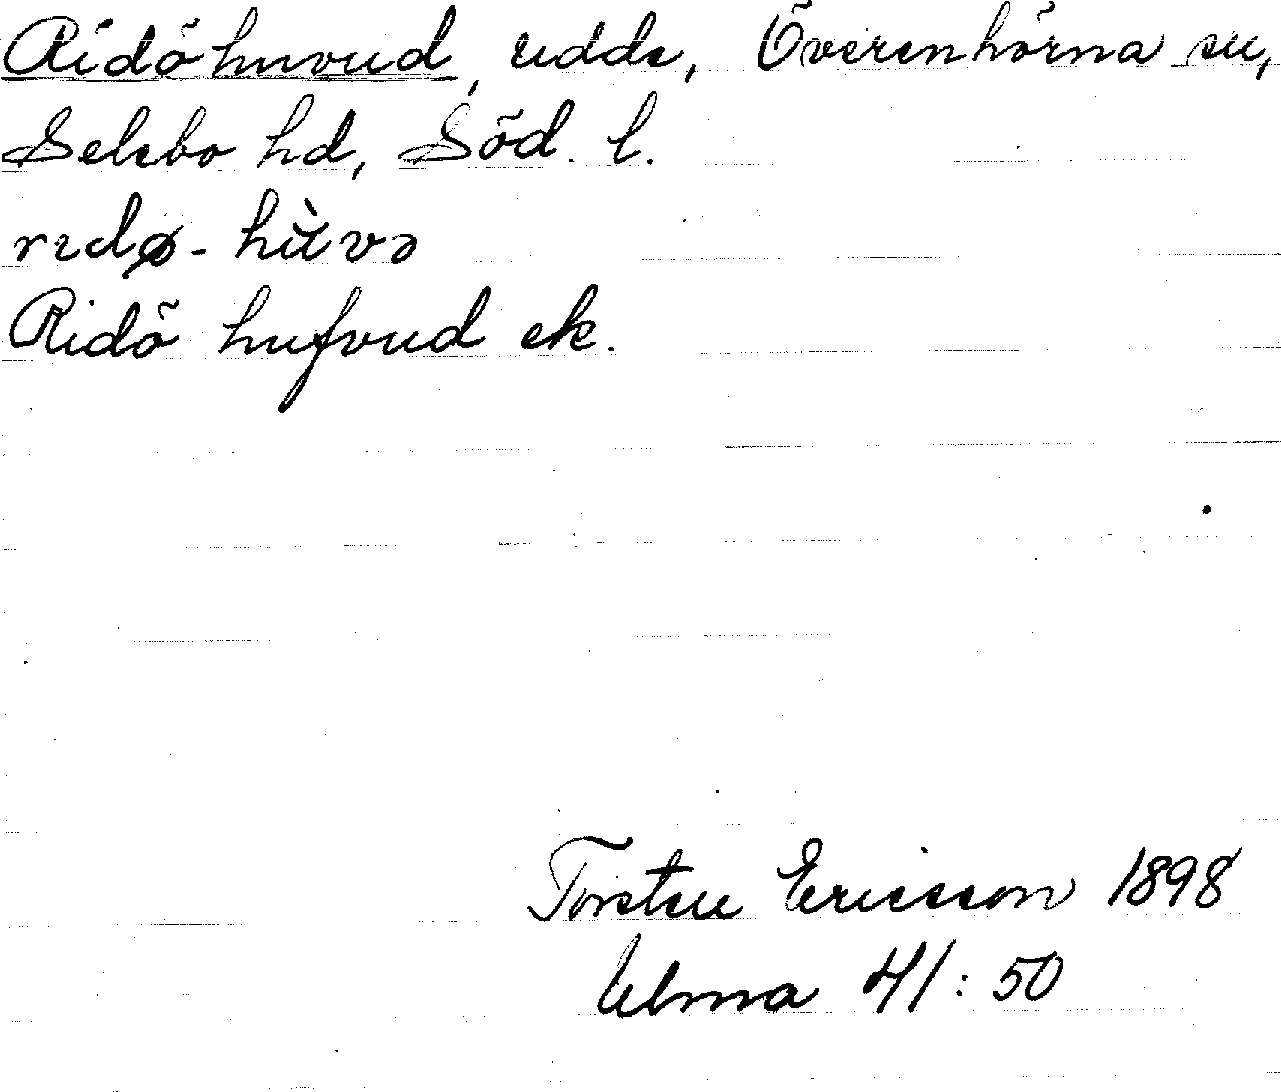 Ridöhuvud, udde, Överenhörna sn,
Selebo hd, Söd. l.
rıdø-hùvə
Ridö hufvud ek.
Torsten Ericsson 1898
Ulma 41:50